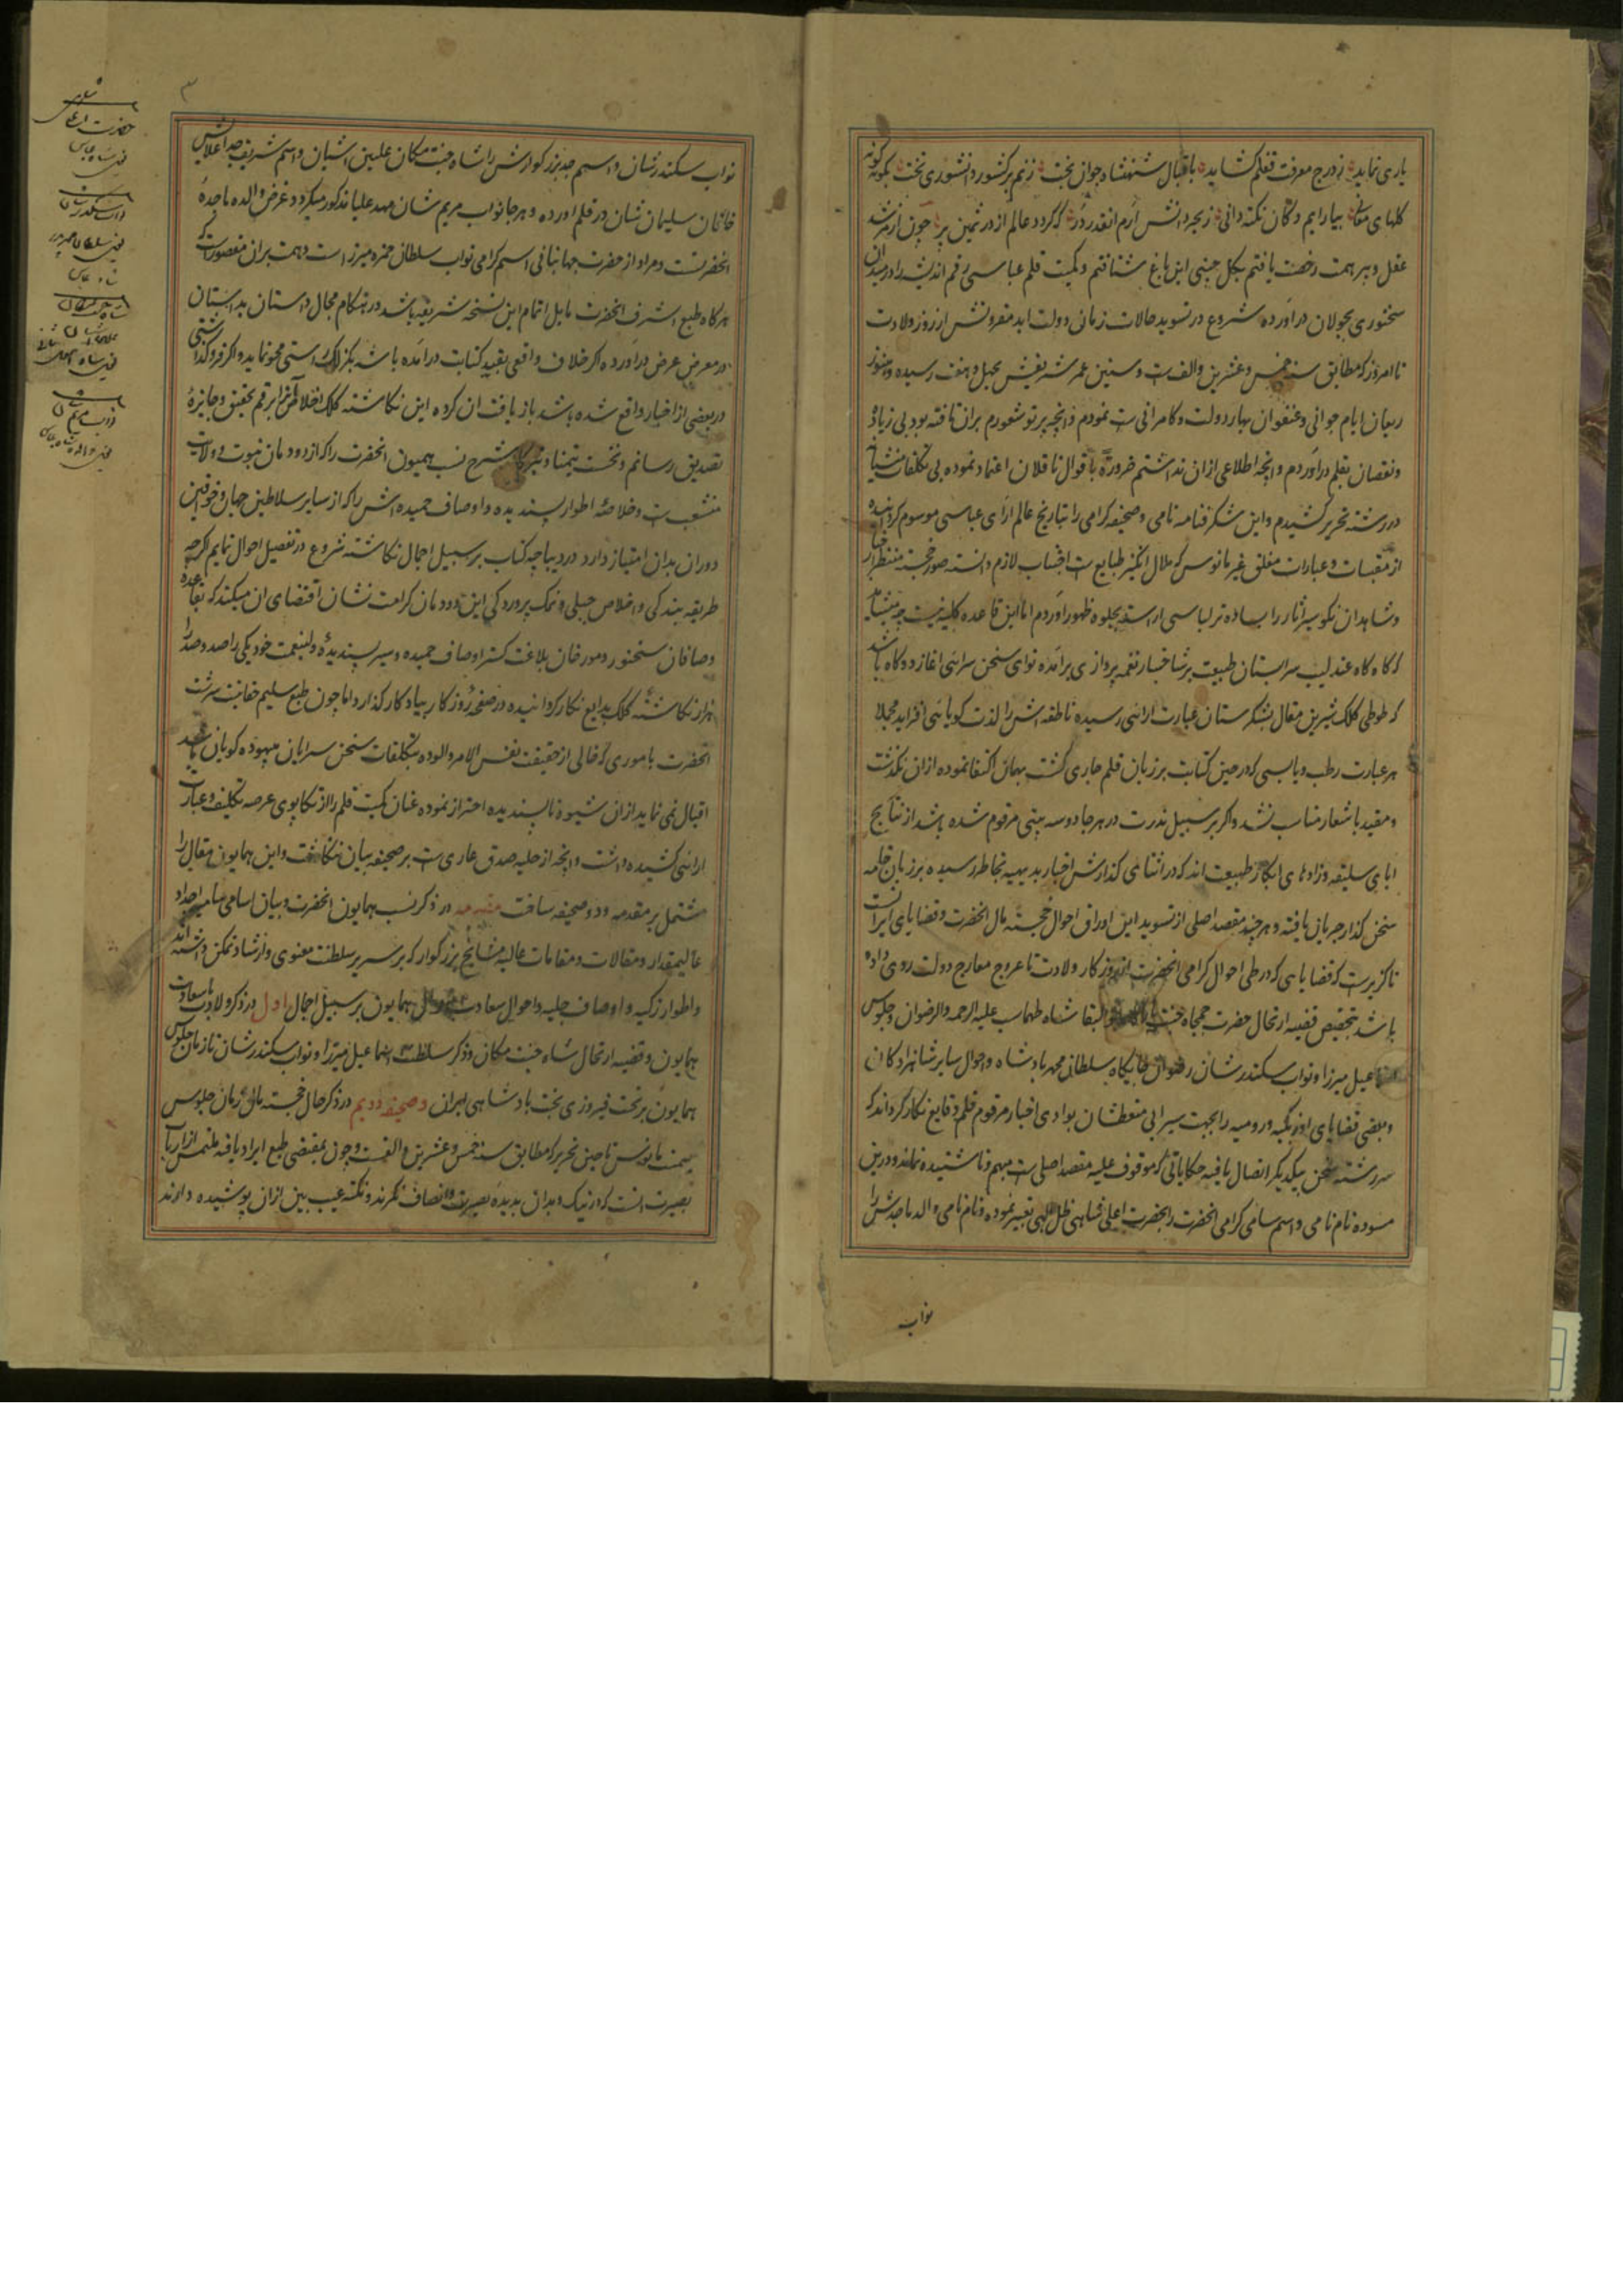 یاری نماید ز درج معرفت قفلم گشاید باقبال شهنشاه جوان بخت زنم بر کشور دانشوری تخت بگونه گونه
گلهای معانی بیارایم دکان نکته دانی ز بحر دانش آرم انقدر در که گردد عالم از در ثمین پر چون از مرشد
عقل و پیر همت رخصت یافتم بگل چینی این باغ شتافتم و کمیت قلم عباسی رقم اندیشه را در میدان
سخنوری بجولان درآورده شروع در تسوید حالات زمانی دولت ابد مقرونش از روز ولادت
تا امروز که مطابق سنه خمس و عشرین و الف است و سنین عمر شریفش بچهل و هفت رسیده و هنوز
ریعان ایام جوانی و عنفوان بهار دولت و کامرانی است نمودم و آنچه پرتو شعورم بران تافته بود بی زیاده
و نقصان بقلم درآوردم و آنچه اطلاعی ازان نداشتم ضرورة باقوال ناقلان اعتماد نموده بی تکلفات منشیانه
در رشته تحریر کشیدم و این شگرفنامه نامی و صحیفه گرامی را بتاریخ عالم آرای عباسی موسوم گردانیده
از مقبسات و عبارات مغلق غیر مانوس که ملال انگیز طبایع است اجتناب لازم دانسته صور خجسته منتظران
و شاهدان نکو سیر آثار را بساده تر لباسی آراسته بجلوه ظهور آوردم اما این قاعده کلیه نیست چه میشاید
که گاه گاه عندلیب سرابستان طبیعت بر شاخسار نغمه پردازی برآمده نوای سخن سرائی آغازد و گاه باشد
که طوطی کلک شیرین مقال بشکرستان عبارت آرائی رسیده ناطقه اش را لذت گویائی افزاید مجملا
هر عبارت رطب و یابسی که در حین کتابت بر زبان قلم جاری گشت بهمان اکتفا نموده ازان نگذشت
و مقید باشعار مناسب نشد و اگر بر سبیل ندرت در هر جا دو سه بیتی مرقوم شده باشد از نتایج
ابای سلیقه و زادهای ابکار طبیعت اند که در اثنای گذارش اخبار بدیهیه بخاطر رسیده بر زبان خامه
سخن گذار جریان یافته و هر چند مقصد اصلی از تسوید این اوراق احوال خجسته مال انحضرت و قضایای ایرانست
ناگزیرست که قضایایی که در طی احوال گرامی انحضرت از روزگار ولادت تا عروج معارج دولت روی داده
باشد بتخصیص قضیه ارتحال حضرت جمجاه جنت البقا شاه طهماسب علیه الرحمه و الرضوان و جلوس
اسماعیل میرزا و نواب سکندرشان رضوان جایگاه سلطان محمد پادشاه و احوال سایر شاهزادگان
و بعضی قضایای اوزبکیه و رومیه را بجهت سیرابی متعطشان بوادی اخبار مرقوم قلم وقایع نگار گرداند که
سررشته سخن بیکدیگر اتصال یافته حکایاتی که موقوف علیه مقصد اصلی است مبهم و ناشنیده نماند و درین
مسوده نام نامی و اسم سامی گرامی انحضرت را بحضرت اعلی شاهی ظل الهی تعبیر نموده و نام نامی والد ماجدش را
نواب
۳
نواب سکندرشان و اسم جد بزرگوارش را شاه جنت مکان علیین آشیان و اسم شریف جد اعلایش
خاقان سلیمان شان در قلم آورده و هر جا نواب مریم شان مهد علیا مذکور میگردد غرض والده ماجده
انحضرتست و مراد از حضرت جهانبانی اسم گرامی نواب سلطان حمزه میرزاست و همت بران مقصورست که
هر گاه طبع اشرف انحضرت مایل اتمام این نسخه شریفه باشد در هنگام مجال داستان بداستان
در معرض عرض درآورده اگر خلاف واقعی بقید کتابت درآمده باشد بکزلک راستی محو نماید و اگر فروگذاشتی
در بعضی از اخبار واقع شده باشد بازیافت ان کرده این نگاشته کلک اخلاص را برقم تحقیق و جایزه
تصدیق رسانم و نخست تیمنا و تبرکا شرح نسب همیون انحضرت را که از دودمان نبوت و ولایت
منشعب است و خلاصه اطوار پسندیده و اوصاف حمیده اش را که از سایر سلاطین جهان و خواقین
دوران بدان امتیاز دارد در دیباچه کتاب بر سبیل اجمال نگاشته شروع در تفصیل احوال نمایم اگرچه
طریقه بندگی و اخلاص جبلی و نمک پروردگی این دودمان کرامت نشان اقتضای ان میکند که بقاعده
وصافان سخنور و مورخان بلاغت گستر اوصاف حمیده و سیر پسندیده ولینعمت خود یکی را صد و صد را
هزار نگاشته کلک بدایع نگار گردانیده در صفحه روزگار بیادگار گذارد اما چون طبع سلیم حقانیت سرشت
انحضرت باموری که خالی از حقیقت نفس الامر و آلوده بتکلفات سخن سرایان بیهوده گویان باشد
اقبال نمی نماید ازان شیوه ناپسندیده احتراز نموده عنان کمیت قلم را از تکاپوی عرصه تکلیف و عبارت
آرائی کشیده داشت و آنچه از حلیه صدق عاری است بر صحیفه بیان ننگاشت و این همایون مقال را
مشتمل بر مقدمه و دو صحیفه ساخت مقدمه در ذکر نسب همایون انحضرت و بیان اسامی سامیه اجداد
عالیمقدار و مقالات و مقامات عالیه مشایخ بزرگوار که بر سریر سلطنت معنوی و ارشاد تمکن داشته اند
و اطوار زکیه و اوصاف جلیه و احوال سعادت همایون بر سبیل اجمال اول در ذکر ولادت با سعادت
همایون و قضیه ارتحال شاه جنت مکان و ذکر سلطنت اسماعیل میرزا و نواب سکندرشان تا زمان جلوس
همایون بر تخت فیروزی بخت پادشاهی ایران و صحیفه دویم در ذکر حال خجسته مال از زمان جلوس
میمنت مانوس تا حین تحریر که مطابق سنه خمس و عشرین و الفست و چون بمقتضی طبع ایراد یافته ملتمس از ارباب
بصیرت انست که در نیک و بد ان بدیده بصیرت و انصاف نگرند و نکته عیب بین ازان پوشیده دارند
حضرت اعلی
یعنی شاه عباس
نواب سکندرشان
یعنی سلطان محمد پدر
شاه عباس
شاه جنت مکان
یعنی شاه
نواب مریم شان
یعنی والده شاه عباس